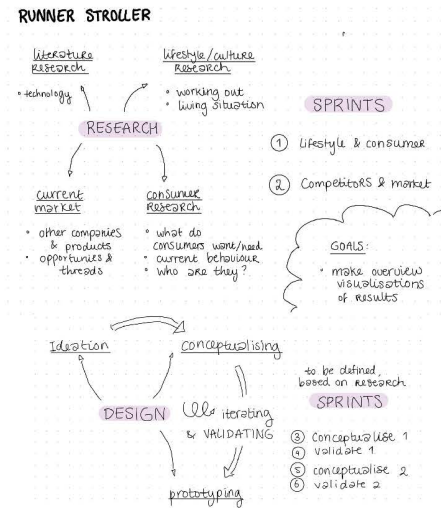 RUNNER STROLLER
literature
research
• technology
lifestyle/culture
research
• working out
• living situation
RESEARCH
current
market
• other companies
& products
• opportunies &
threads
consumer
research
• what do
consumers want/need
• current behaviour
• who are they?
SPRINTS
① lifestyle & consumer
② Competitors & market
GOALS:
• make overview
visualisations
of results
Ideation
conceptualising
DESIGN
iterating
& VALIDATING
prototyping
to be defined,
based on research
SPRINTS
③ conceptualise 1
④ validate 1
⑤ conceptualise 2
⑥ validate 2